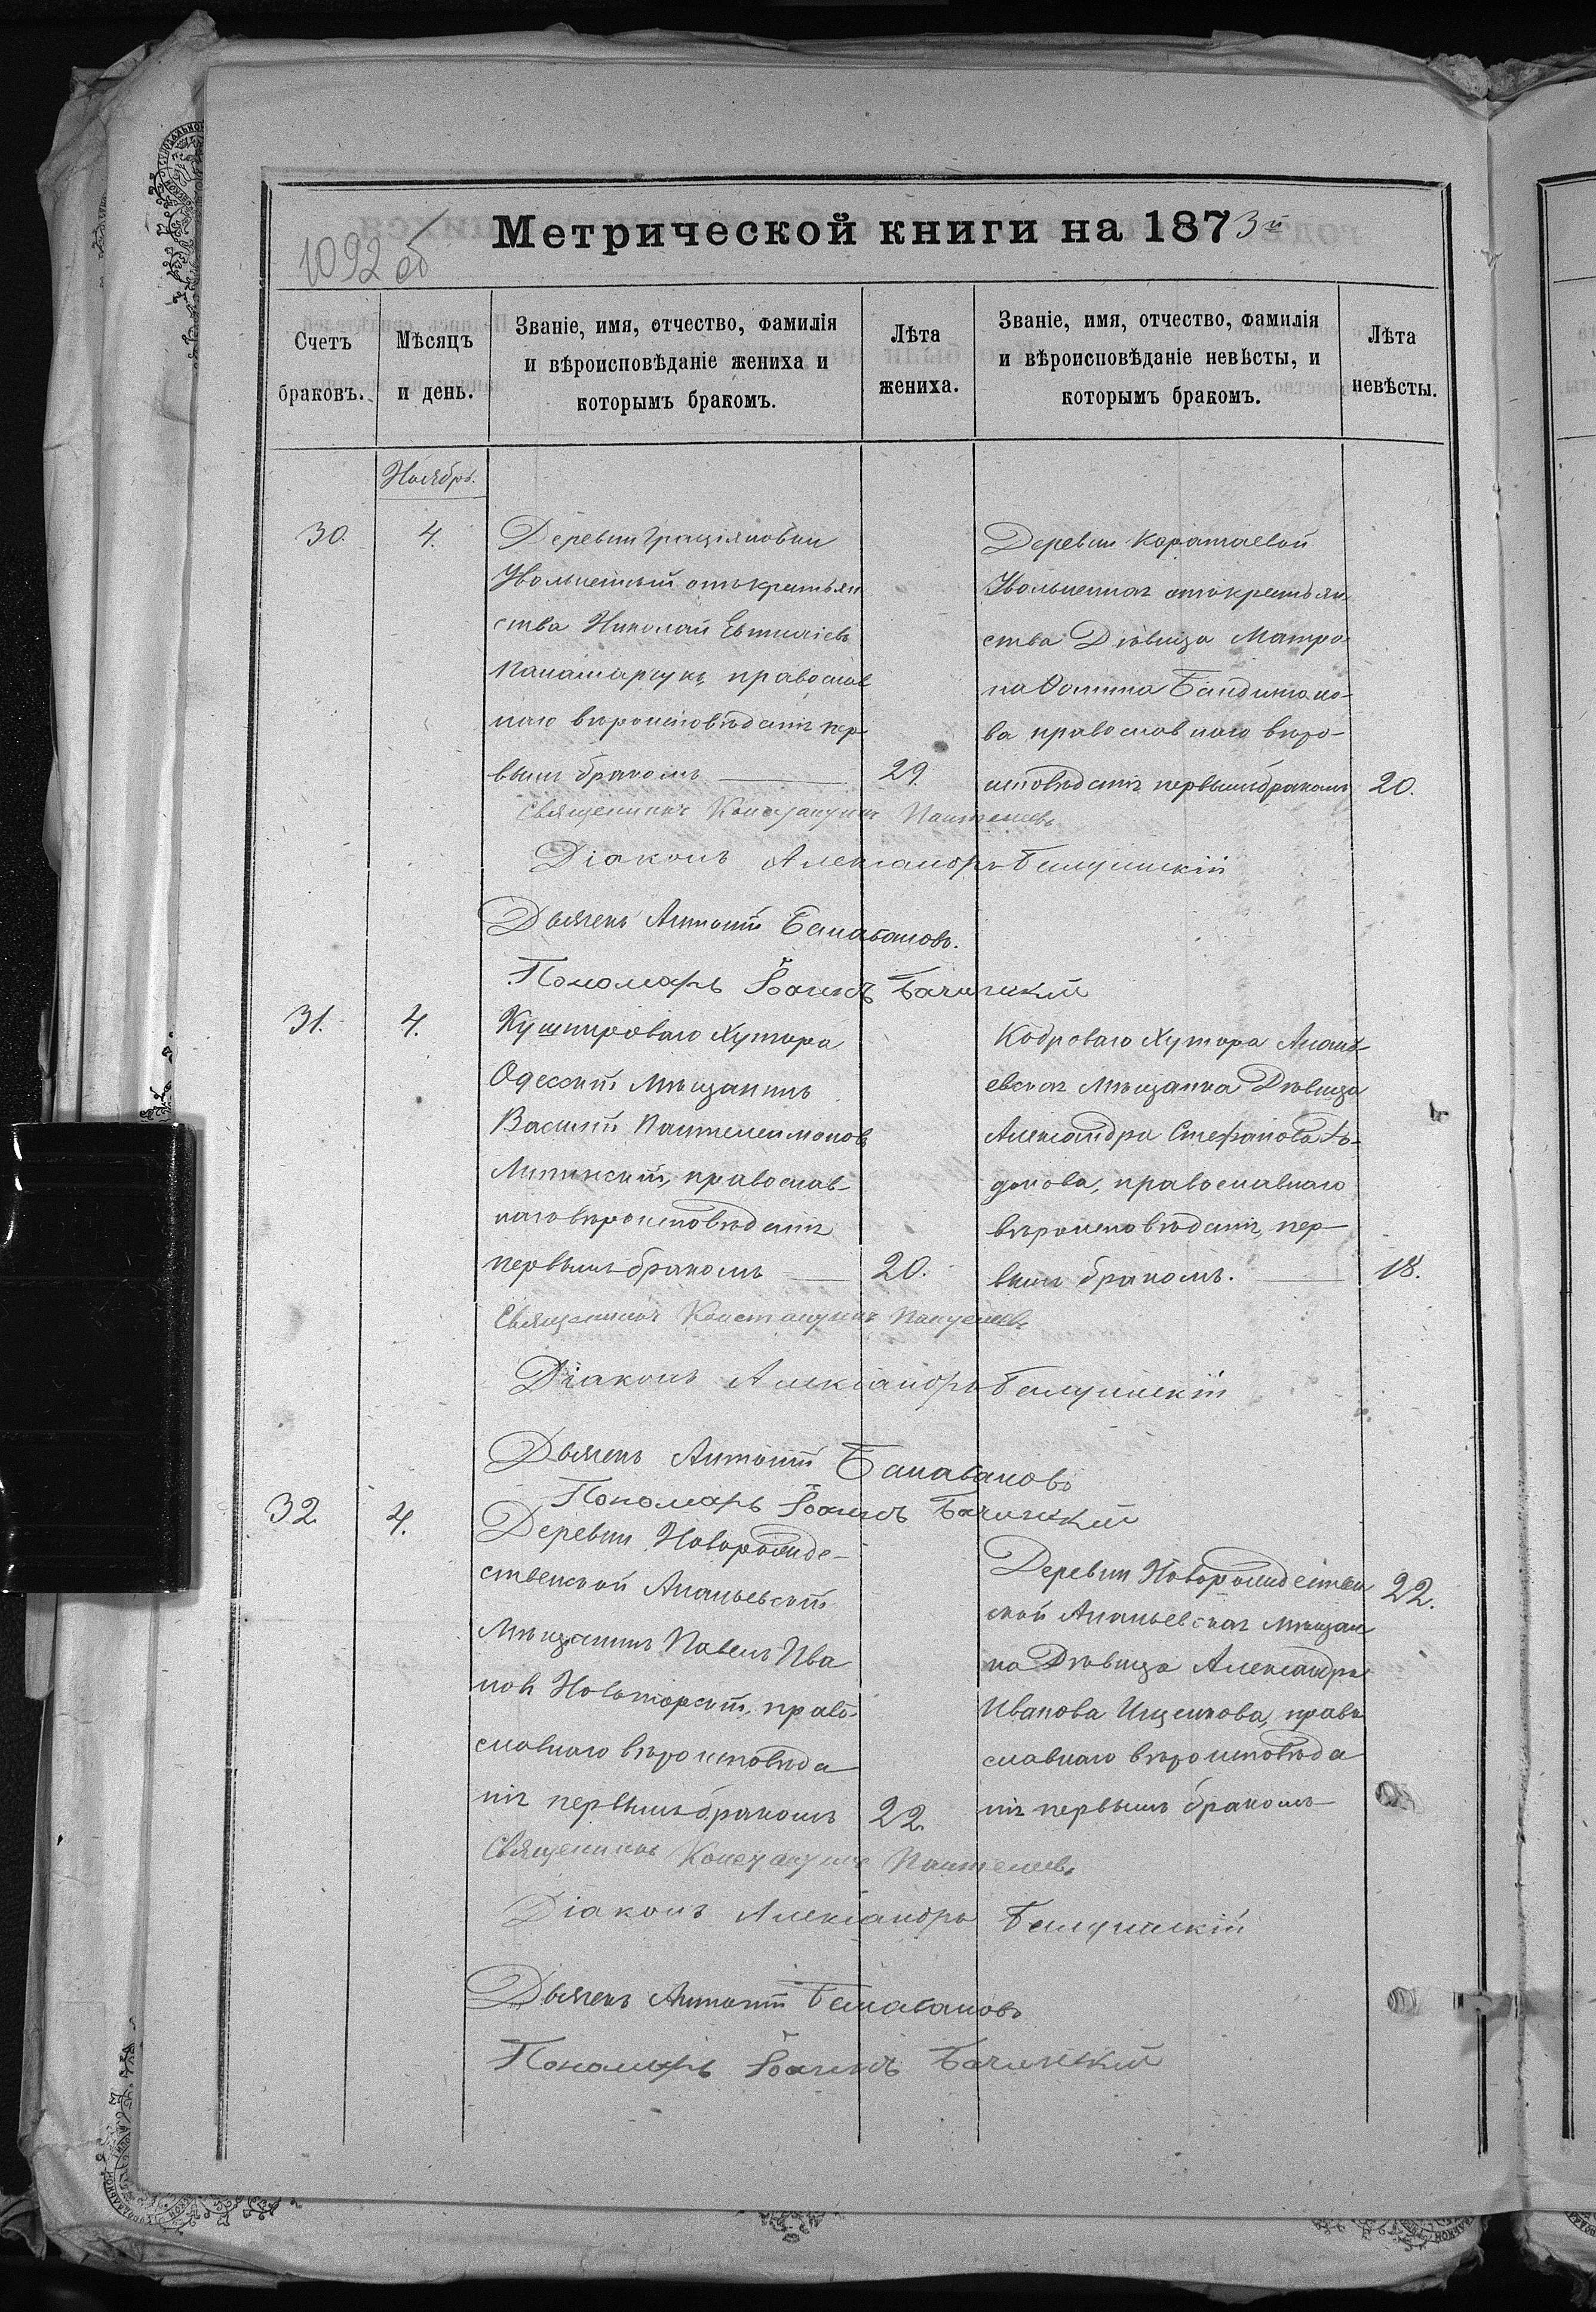 Метрической книги на 1873й
1092 об
Счетъ браковъ.
Мѣсяцъ и день.
Званіе, имя, отчество, фамилія и вѣроисповѣданіе жениха и которымъ бракомъ.
Лѣта жениха.
Званіе, имя, отчество, фамилія и вѣроисповѣданіе невѣсты, и которымъ бракомъ.
Лѣта невѣсты.
Ноябрь.
30.
4.
Деревни Граціяновки
Уволненный отъ крестьян
ства Николай Евтихіевъ
Панамарчукъ, православ
наго вѣроисповѣданія пер
вымъ бракомъ
29.
Деревни Каратаевой
Уволненная отъ крестьян
ства Дѣвица Матро
на Фомина
ва православнаго вѣро-
исповѣданія первымъ бракомъ
20.
Священникъ Константинъ Пантелеевъ
Діаконъ Александръ
Дьячекъ Антоній Балабановъ.
Пономарь Іоаннъ Бачинскій
31.
4.
Кушнироваго Хутора
Одесскій Мѣщанинъ
Василій Пантелеимоновъ
Липинскій, православ-
наго вѣроисповѣданія
первымъ бракомъ
20.
Кодроваго Хутора Ананьевская Мѣщанка Дѣвица
Александра Стефанова
православнаго
вѣроисповѣданія, пер
вымъ бракомъ.
18.
Священникъ Константинъ Пантелеевъ
Діаконъ Александръ
Дьячекъ Антоній Балабановъ
Пономарь Іоаннъ Бачинскій
32.
4.
Деревни Новорожде-
ственской Ананьевскій
Мѣщанинъ Павелъ Ива
новъ Новоторскій, право-
славнаго вѣроисповѣда
нія первымъ бракомъ
22.
Деревни Новорождествен
ской Ананьевская Мѣщан
ка Дѣвица Александра
Иванова Ищенкова, право
славнаго вѣроисповѣда
нія первымъ бракомъ
22.
Священникъ Константинъ Пантелеевъ
Діаконъ Александръ
Дьячекъ Антоній Балабановъ
Пономарь Іоаннъ Бачинскій